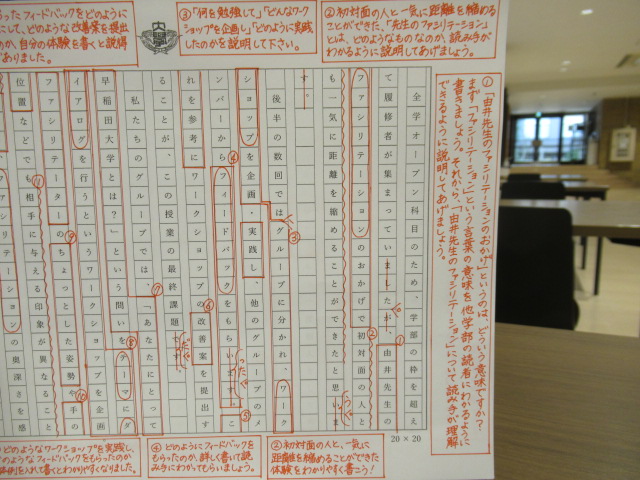 ①「由井先生のファシリテーションのおかげ」というのは、どういう意味ですか？
まず「ファシリテーション」という言葉の意味を他学部の読者にわかるように
書きましょう。それから、「由井先生のファシリテーション」について読み手が理解
できるように説明してあげましょう。
②初対面の人と一気に距離を縮める
ことができた、「先生のファシリテーション」
とは、どのようなものなのか、読み手が
わかるように説明してあげましょう。
③「何を勉強して」「どんなワーク
ショップを企画し」「どのように実践
したのか」を説明して下さい。
ったフィードバックをどのように
して、どのような改善案を提出
のか、自分の体験を書くと説得
がありました。
全学オープン科目のため、学部の枠を超え
て履修者が集まっていましたが、由井先生の
ファシリテーションのおかげで初対面の人と
も一気に距離を縮めることができたと思いま
す。
後半の数回ではグループに分かれ、ワーク
ショップを企画・実践し、他のグループのメ
ンバーからフィードバックをもらいます。こ
れを参考にワークショップの改善案を提出す
ることが、この授業の最終課題です。
私たちのグループでは、「あなたにとって
早稲田大学とは？」という問いをテーマにダ
イアログを行うというワークショップを企画
ファシリテーターのちょっとした姿勢や手の
位置などでも相手に与える印象が異なること
ファシリテーションの奥深さを感
20×20
②初対面の人と、一気に
距離を縮めることができた
体験をわかりやすく書こう！
④どのようにフィードバックを
もらったのか、詳しく書いて読
み手にわかってもらいましょう。
どのようなワークショップを実践し、
のようなフィードバックをもらったのか
体例を入れて書くとわかりやすくなりました。